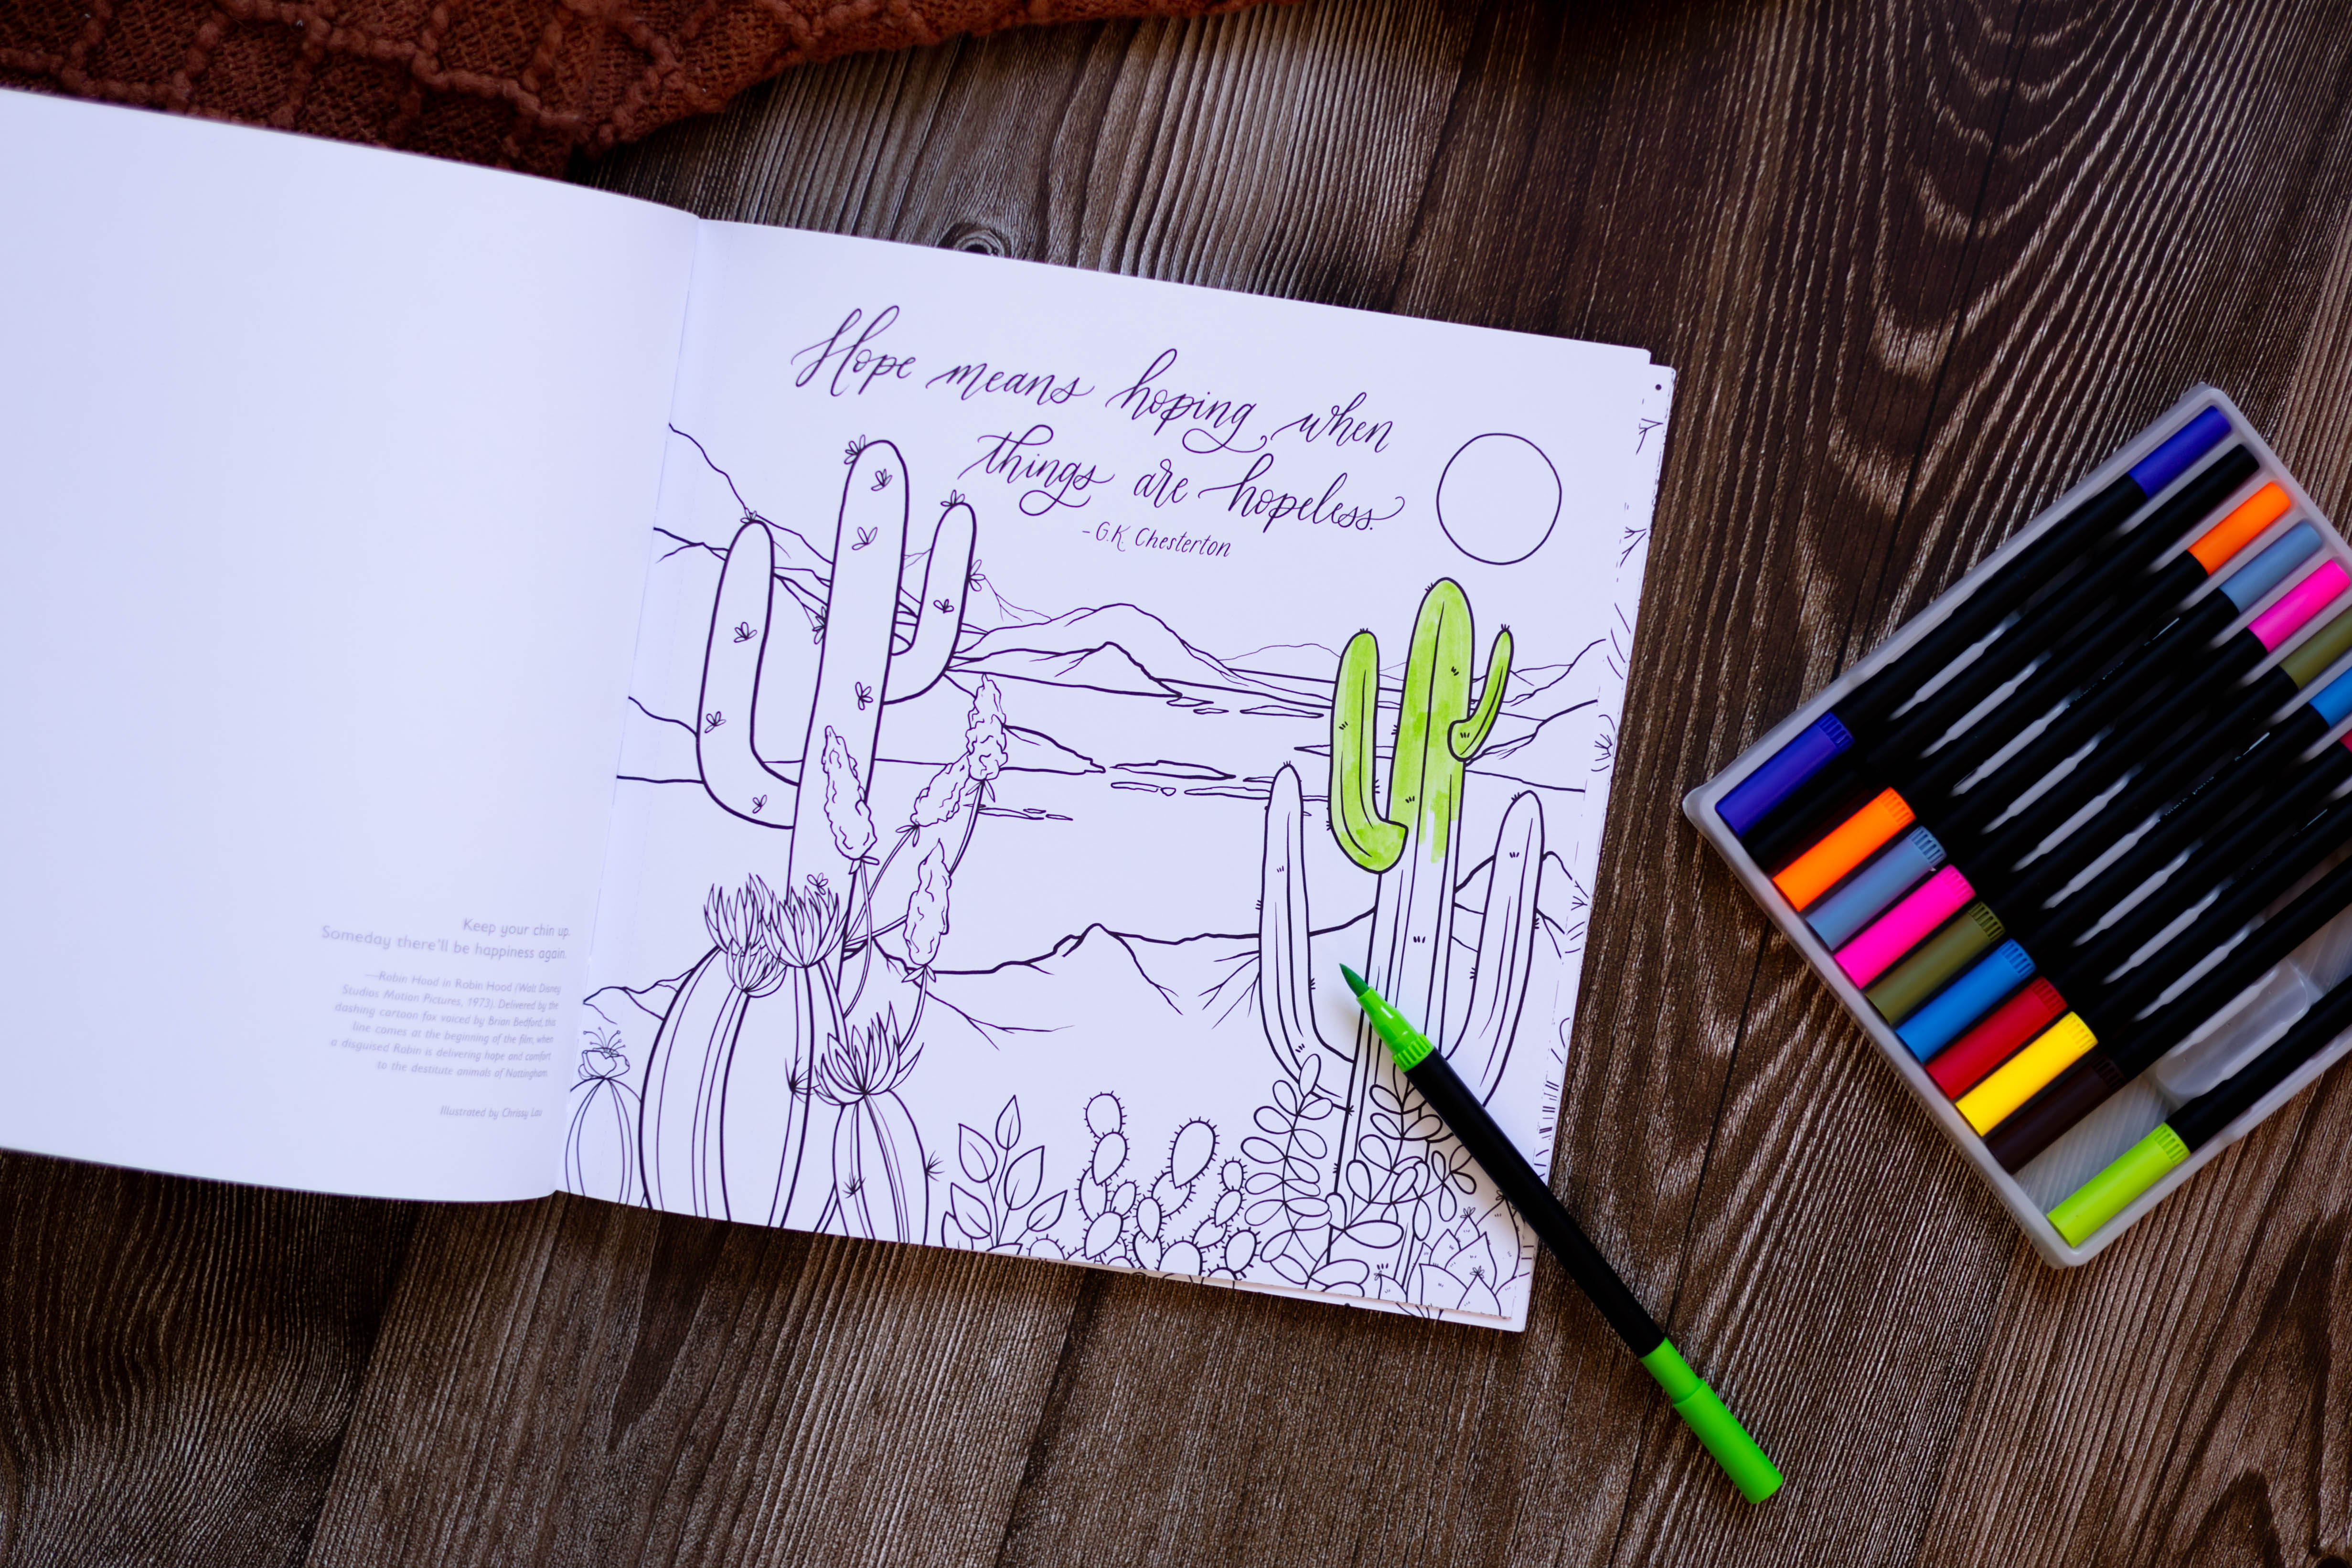 Keep your chin up.
Someday there'll be happiness again.
—Robin Hood in Robin Hood (Walt Disney
Studios Motion Pictures, 1973). Delivered by the
dashing cartoon fox voiced by Brian Bedford, this
line comes at the beginning of the film, when
a disguised Robin is delivering hope and comfort
to the destitute animals of Nottingham.
Illustrated by Chrissy Lau
Hope means hoping when
things are hopeless.
-G.K. Chesterton